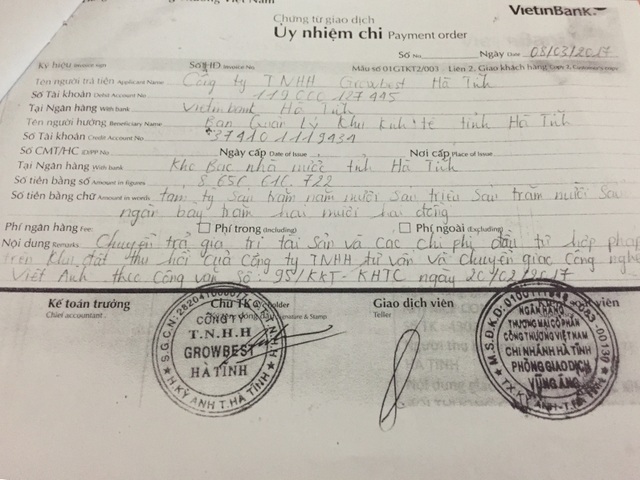 VietinBank
Chứng từ giao dịch
Ủy nhiệm chi Payment order
Số No Ngày Date 08/03/2017
Ký hiệu Invoice sign Số HĐ Invoice No Mẫu số 01GTKT2/003 Liên 2. Giao khách hàng Copy 2. Customer copy
Tên người trả tiền Applicant Name Công ty TNHH Growbest Hà Tĩnh
Số Tài khoản Debit Account No 119000 127445
Tại Ngân hàng With bank Vietinbank Hà Tĩnh
Tên người hưởng Beneficiary Name Ban Quản Lý Khu kinh tế tỉnh Hà Tĩnh
Số Tài khoản Credit Account No 37410 1119434
Số CMT/HC ID/PP No Ngày cấp Date of Issue Nơi cấp Place of Issue
Tại Ngân hàng With bank Kho Bạc nhà nước tỉnh Hà Tĩnh
Số tiền bằng số Amount in figures 8 656 616 722
Số tiền bằng chữ Amount in words tám tỷ sáu trăm năm mươi sáu triệu sáu trăm mười sáu
ngàn bảy trăm hai mươi hai đồng
Phí ngân hàng Fee: Phí trong (Including) Phí ngoài (Excluding)
Nội dung Remarks Chuyển trả giá trị tài sản và các chi phí đầu tư hợp pháp
trên khu đất thu hồi của Công ty TNHH tư vấn và Chuyển giao Công nghệ
Việt Anh theo Công văn số 95/KKT-KHTC ngày 20/02/2017
Kế toán trưởng Chủ TK holder Giao dịch viên viên
Chief accountant Signature & Stamp Teller
CÔNG TY
T.N.H.H
GROWBEST
HÀ TĨNH
H.KỲ ANH T.HÀ TĨNH
NGÂN HÀNG
THƯƠNG MẠI CỔ PHẦN
CÔNG THƯƠNG VIỆT NAM
CHI NHÁNH HÀ TĨNH
PHÒNG GIAO DỊCH
VŨNG ÁNG